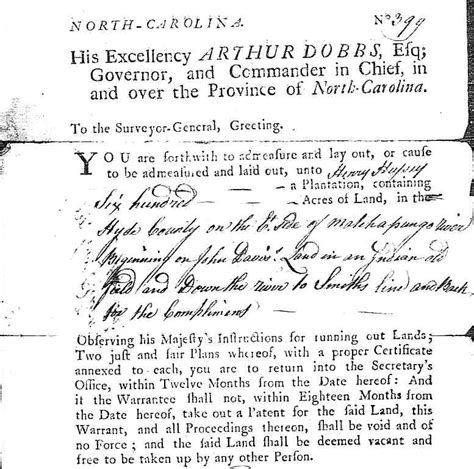 NORTH-CAROLINA. No 399
His Excellency ARTHUR DOBBS, Esq;
Governor, and Commander in Chief, in
and over the Province of North-Carolina.
To the Surveyor-General, Greeting.
YOU are forthwith to admeasure and lay out, or cause
to be admeasured and laid out, unto Henry Hussey
— a Plantation, containing
Six hundred — Acres of Land, in the
Hyde County on the Et. side of matchapungo River
Beginning on John Davis. Land in an Indian old
field and Down the river to Smiths line and Back
for the Compliment —
Observing his Majesty's Instructions for running out Lands;
Two just and fair Plans whereof, with a proper Certificate
annexed to each, you are to return into the Secretary's
Office, within Twelve Months from the Date hereof: And
it the Warrantee shall not, within Eighteen Months from
the Date hereof, take out a Patent for the said Land, this
Warrant, and all Proceedings thereon, shall be void and of
no Force; and the said Land shall be deemed vacant and
free to be taken up by any other Person.